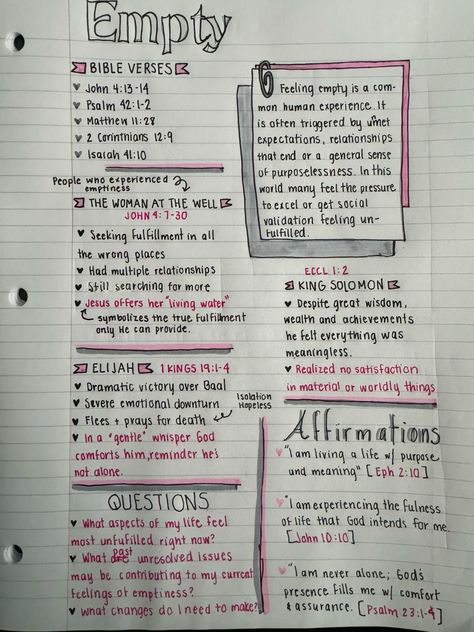 Empty
BIBLE VERSES
John 4:13-14
Psalm 42:1-2
Matthew 11:28
2 Corinthians 12:9
Isaiah 41:10
Feeling empty is a com-
mon human experience. It
is often triggered by unmet
expectations, relationships
that end or a general sense
of purposelessness. In this
world many feel the pressure
to excel or get social
validation feeling un-
fulfilled.
People who experienced
emptiness
THE WOMAN AT THE WELL
JOHN 4:7-30
Seeking fulfillment in all
the wrong places
Had multiple relationships
Still searching for more
Jesus offers her "living water"
symbolizes the true fulfillment
only He can provide.
ECCL 1:2
KING SOLOMON
Despite great wisdom,
wealth and achievements
he felt everything was
meaningless.
Realized no satisfaction
in material or worldly things
ELIJAH 1 KINGS 19:1-4
Dramatic victory over Baal
Severe emotional downturn
Flees + prays for death
Isolation
Hopeless
In a "gentle" whisper God
comforts him, reminder he's
not alone.
QUESTIONS
What aspects of my life feel
most unfulfilled right now?
What past unresolved issues
may be contributing to my current
feelings of emptiness?
What changes do I need to make?
Affirmations
"I am living a life w/ purpose
and meaning" [Eph 2:10]
"I am experiencing the fulness
of life that God intends for me.
[John 10:10]
"I am never alone; God's
presence fills me w/ comfort
& assurance. [Psalm 23:1-4]